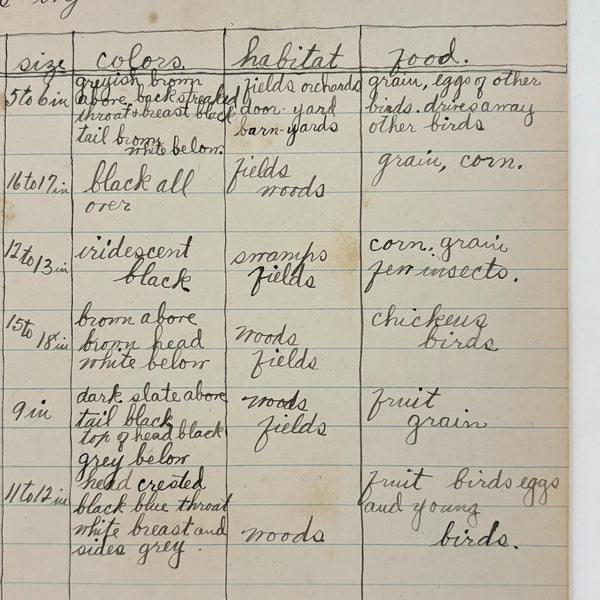 size colors. habitat food.
5 to 6 in
greyish brown
above, back streaked
throat & breast black
tail brown
white below.
fields orchards
door-yard
barn-yards
grain, eggs of other
birds. drives away
other birds
16 to 17 in
black all
over
fields
woods
grain, corn.
12 to 13 in
iridescent
black
swamps
fields
corn, grain
few insects.
15 to 18 in
brown above
brown head
white below
woods
fields
chickens
birds
9 in
dark slate above
tail black
top of head black
grey below
woods
fields
fruit
grain
11 to 12 in
head crested
black blue throat
white breast and
sides grey.
woods
fruit birds eggs
and young
birds.